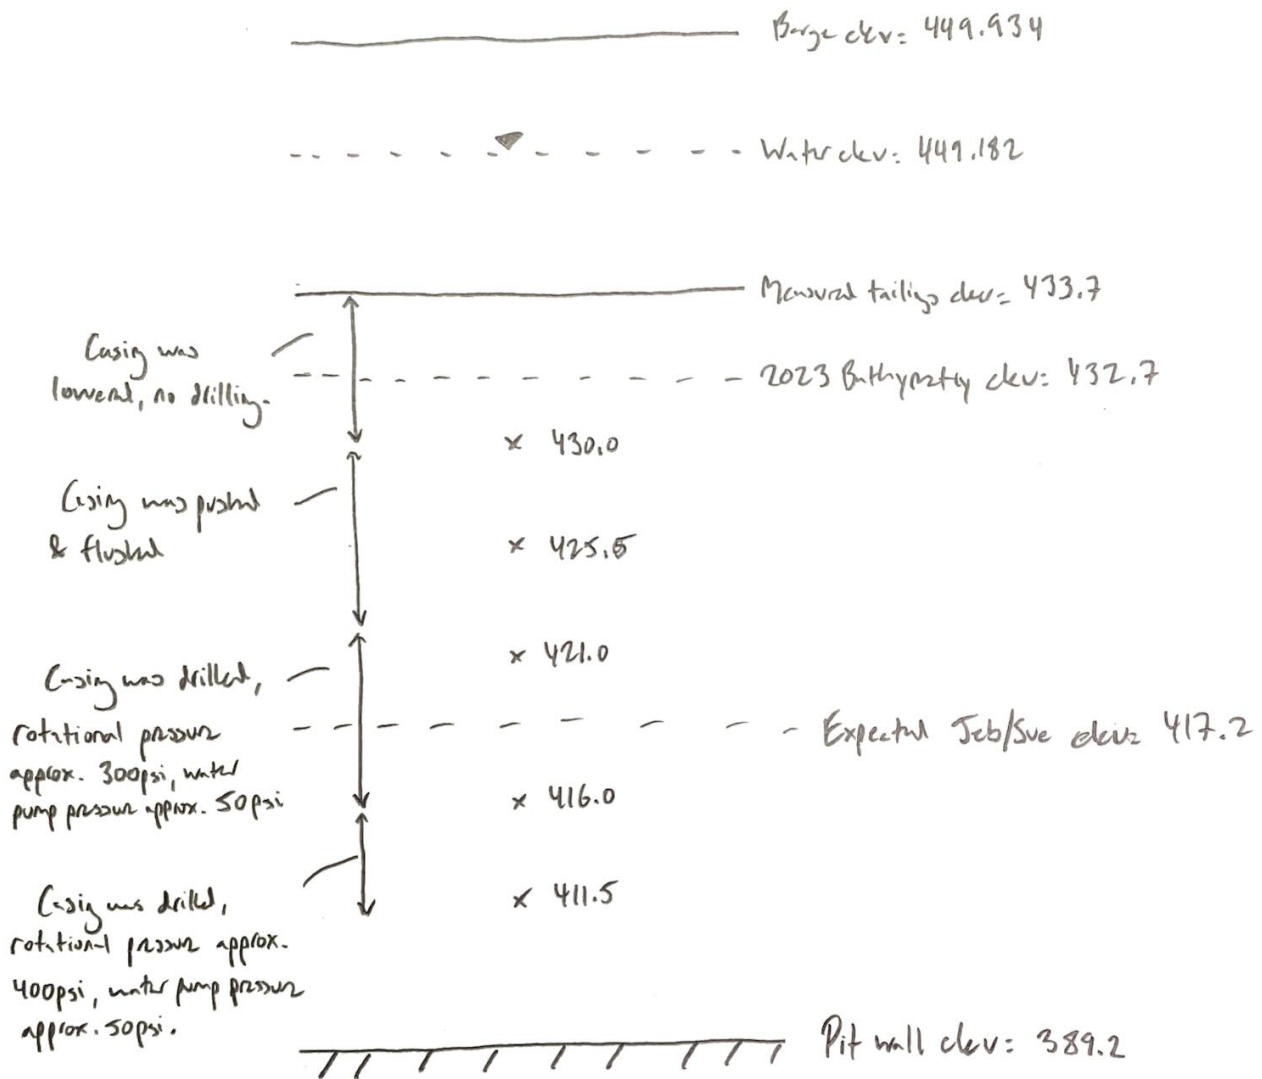 Barge elev: 449.934
Water elev: 449.182
Measured tailings elev: 433.7
Casing was
lowered, no drilling.
2023 Bathymetry elev: 432.7
x 430.0
Casing was pushed
& flushed
x 425.5
x 421.0
Casing was drilled,
rotational pressure
approx. 300psi, water
pump pressure approx. 50psi
Expected Jeb/Sue elev: 417.2
x 416.0
x 411.5
Casing was drilled,
rotational pressure approx.
400psi, water pump pressure
approx. 50psi.
Pit wall elev: 389.2